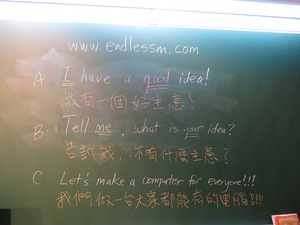 www.endlessm.com
A. I have a good idea!
我有一個好主意!
B: Tell me, what is your idea?
告訴我,你有什麼主意?
C Let's make a computer for everyone!!!
我們做一台大家都能有的電腦!!!